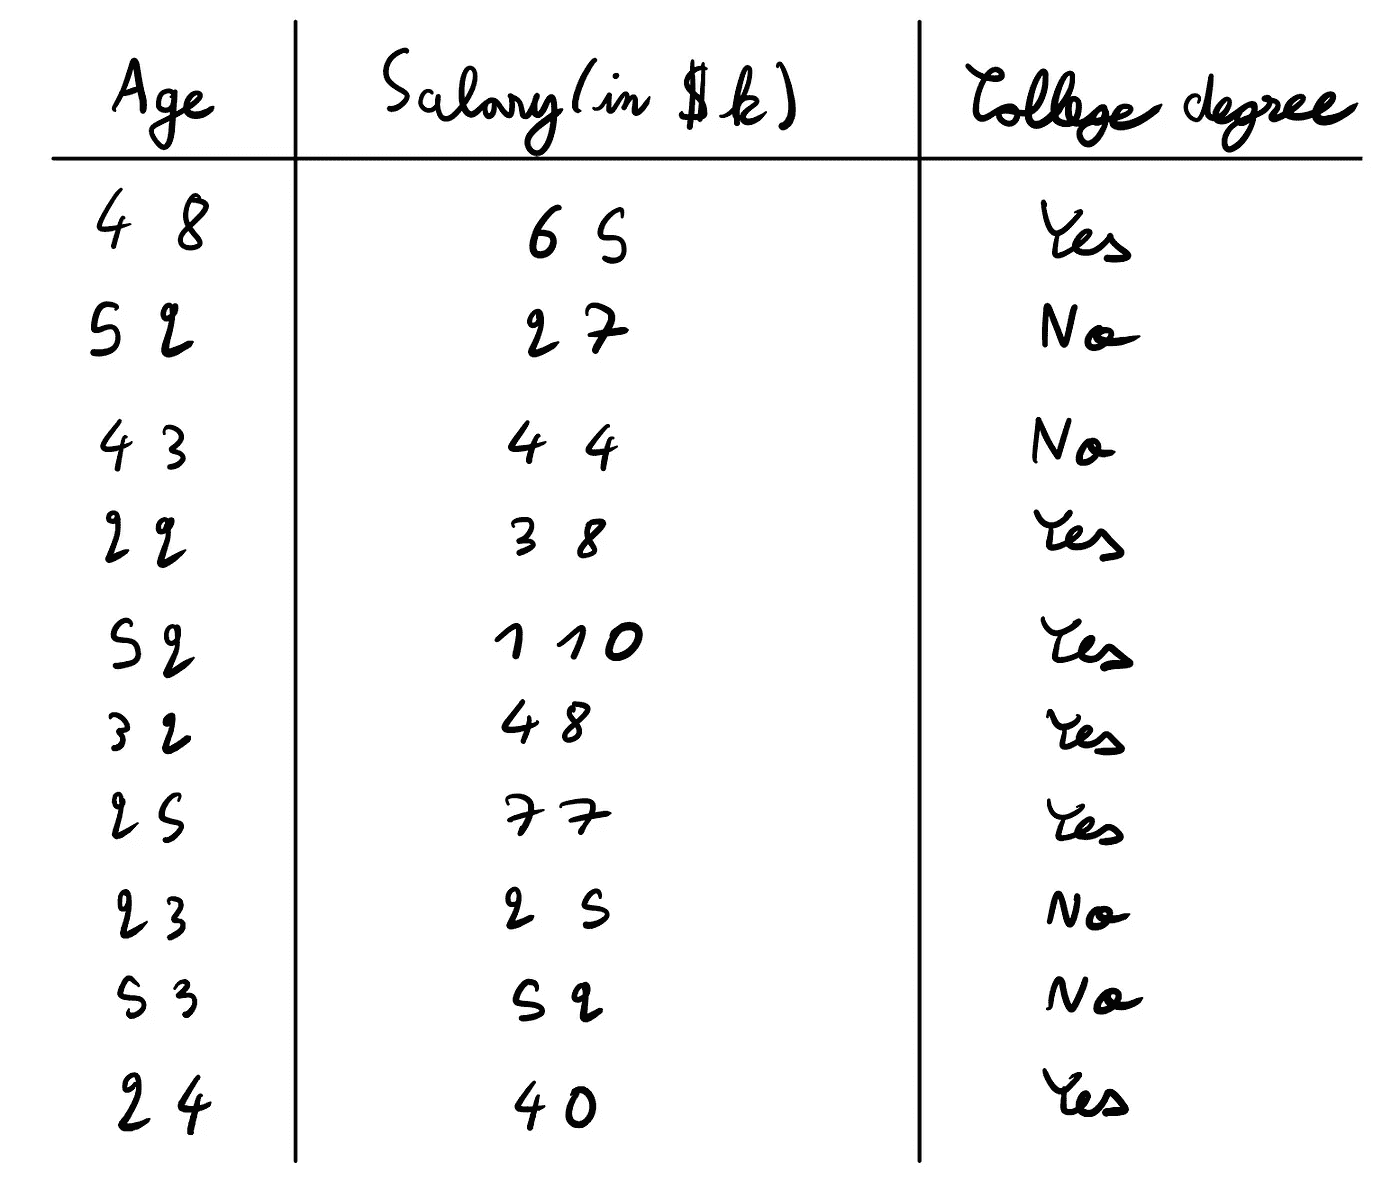 Age Salary (in $k) College degree
48 65 Yes
52 27 No
43 44 No
22 38 Yes
52 110 Yes
32 48 Yes
25 77 Yes
23 25 No
53 52 No
24 40 Yes